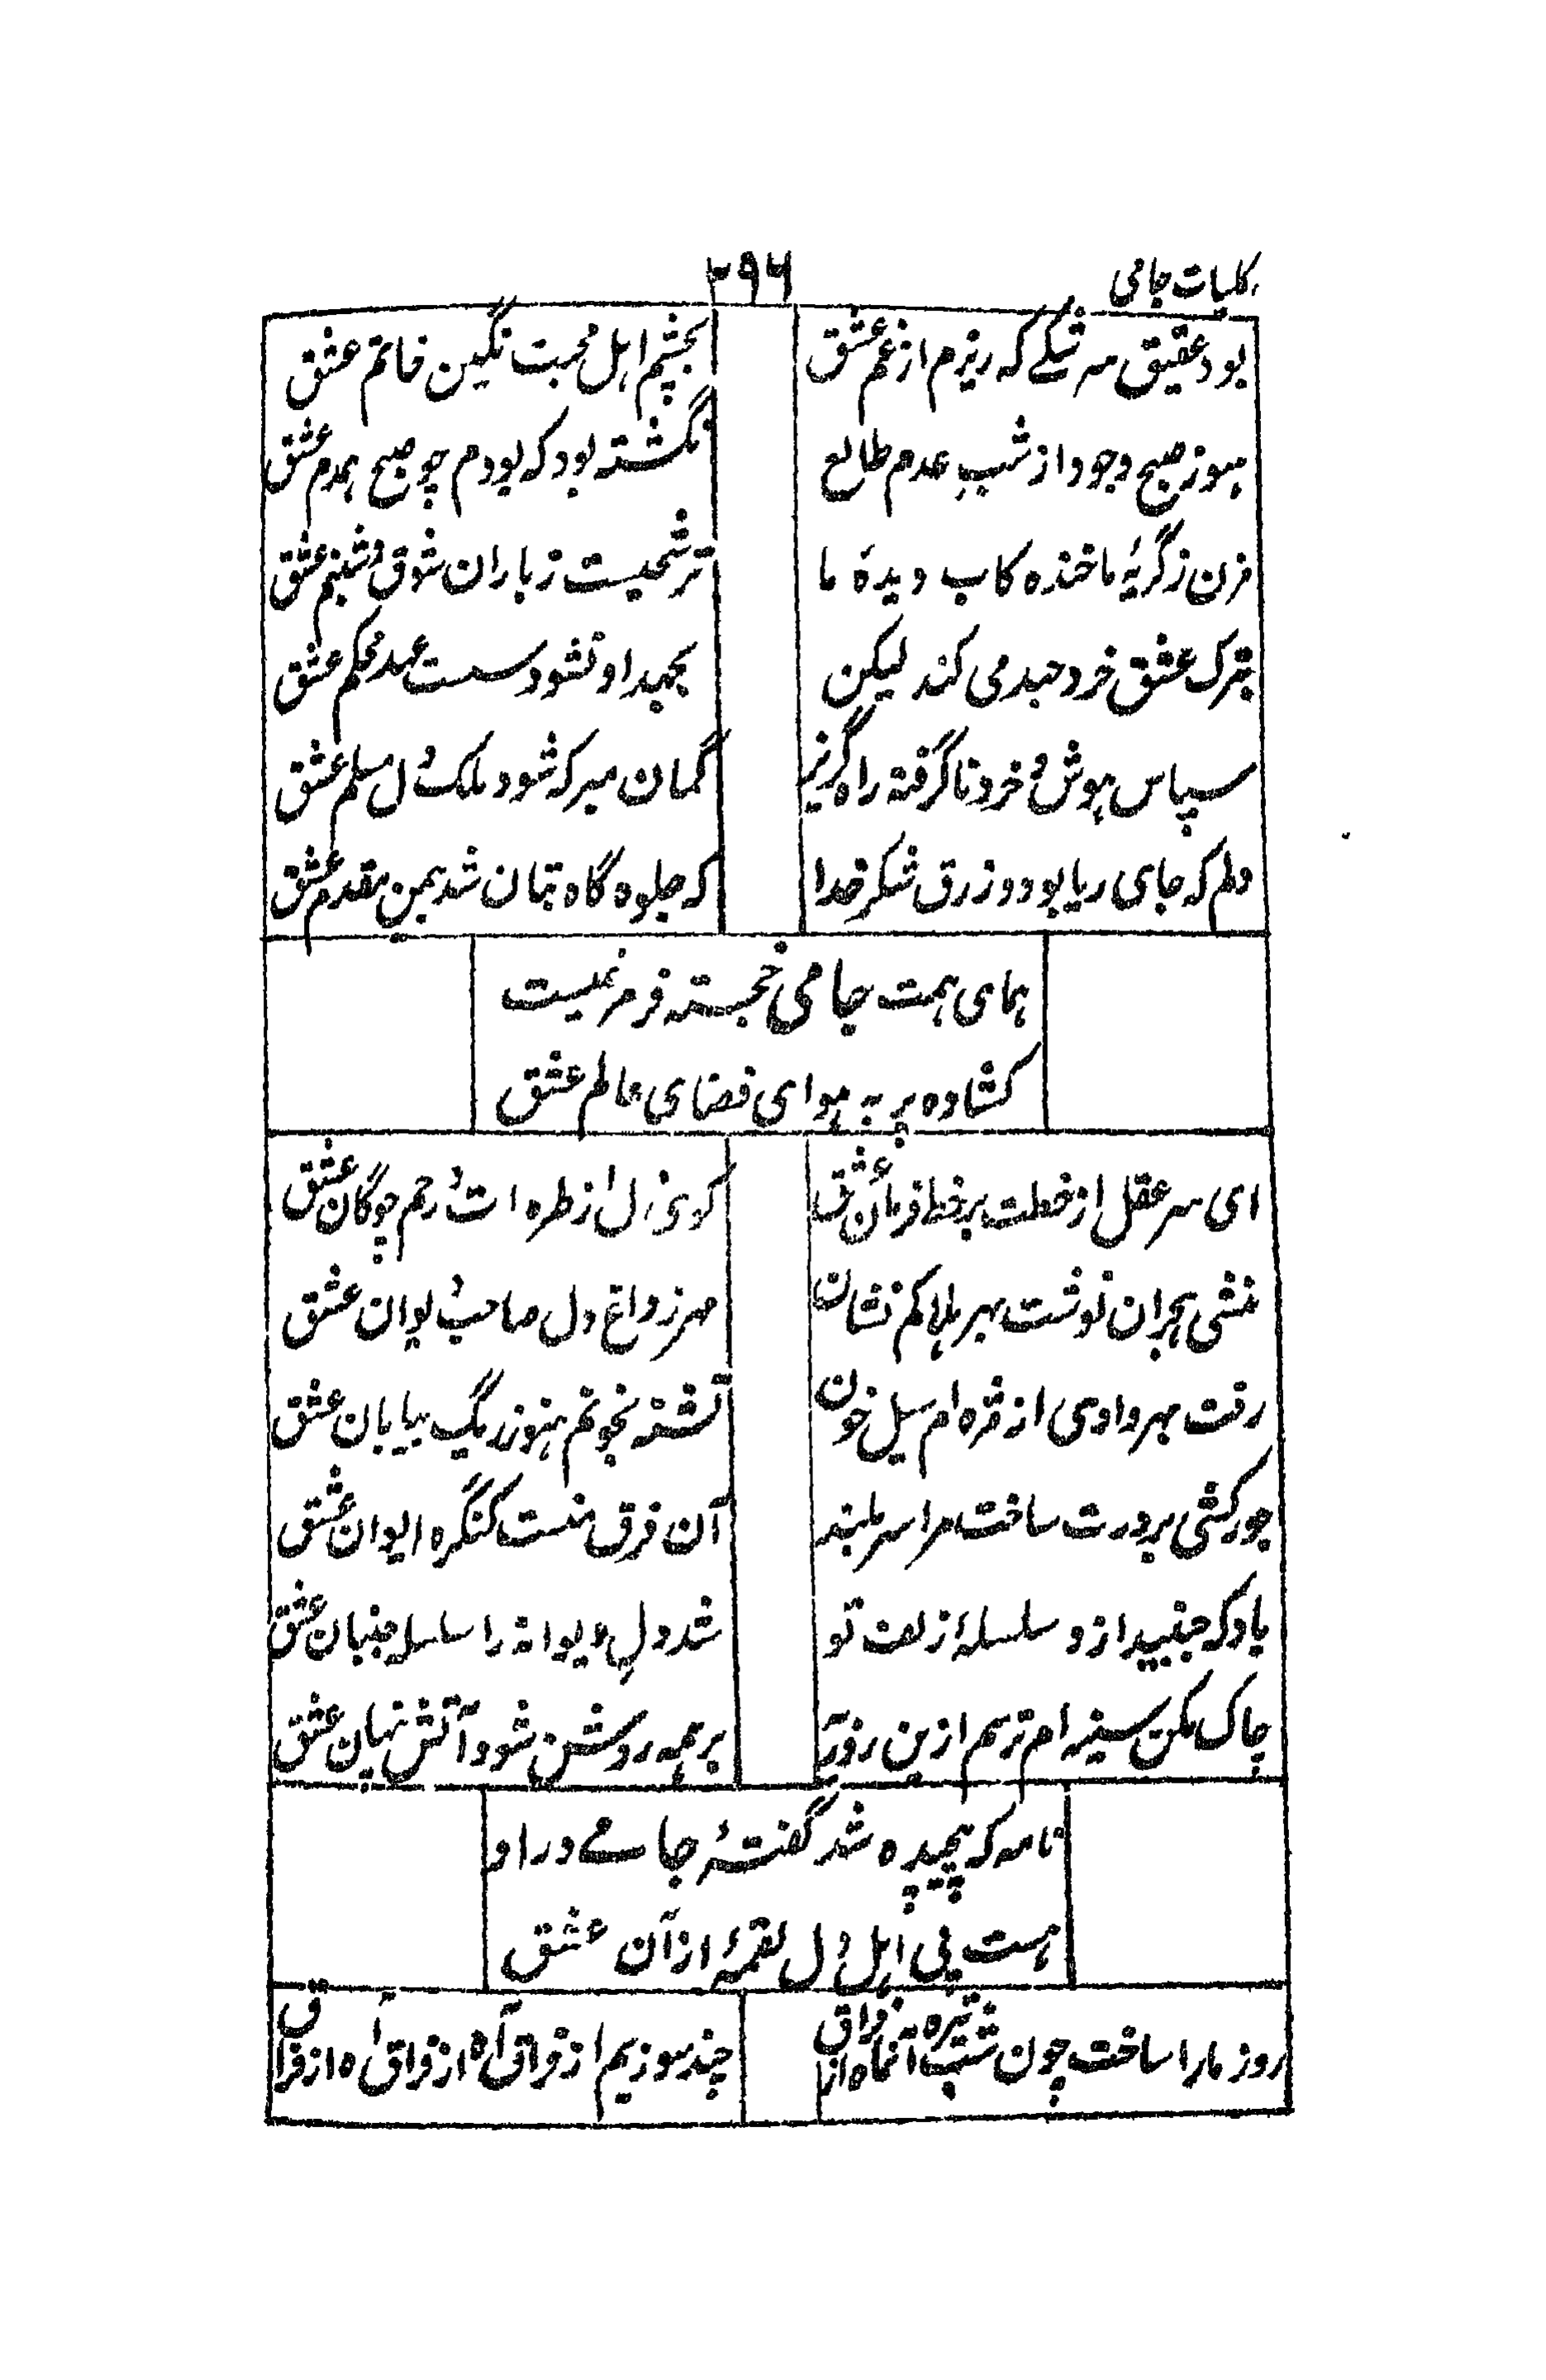 کلیات جامی
۳۹۶
بود عقیق سرشکے که ریزم از غم عشق
بچشم اہل محبت نگین خاتم عشق
ہنوز صبح وجود از شبِ عدم طالع
نگشته بود که بودم چو صبح ہمدم عشق
مزن ز گریۂ ما خنده کاب دیدۂ ما
ترشحیست ز باران شوق و شبنم عشق
بترک عشق خرد جہد می کند لیکن
بجہد او نشود سست عہد محکم عشق
سپاس ہوش و خرد نا گرفته راه گریز
گمان مبر که شود ملک دل مسلم عشق
دلم که جای ریا بود و زرق شکر خدا
که جلوه گاه بتان شد بیمن مقدم عشق
ہمای ہمت جامی خجسته فر مرغیست
کشاده پر به ہوای فضای عالم عشق
ای سر عقل از خطت بر خط فرمان عشق
گوی دل از طره ات در خم چوگان عشق
منشی ہجران نوشت بہر ہلاکم نشان
مہر ز داغ دل صاحب دیوان عشق
رفت بہر وادی از مژه ام سیل خون
تشنه بخونم ہنوز ریگ بیابان عشق
جور کشی بر درت ساخت مرا سر بلند
آن فرق منست کنگره ایوان عشق
باد که جنبید ازو سلسلۂ زلف تو
شد دلِ دیوانه را سلسله جنبان عشق
چاک مکن سینه ام ترسم ازین روزن
بر ہمه روشن شود آتش پنہان عشق
نامه که پیچیده شد گفتۂ جامے در او
ہست پی اہل دل لقمۂ از آن عشق
روز مارا ساخت چون شب تیره آنماه از فراق
چند سوزیم از فراق آه از فراق آه از فراق